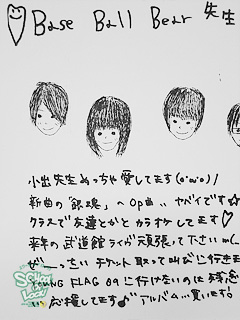 Base Ball Bear 先生
小出先生めっちゃ愛してます(o'ω'o)/
新曲の"銀魂"へOp曲、ヤバイです☆
クラスで友達とかとカラオケしてます♡
来年の武道館ライヴ頑張って下さいm(_
ぜ——っさい チケット取って叫びに行きま
YOUNG FLAG 09 に行けないのは残念
い 応援してます♪ アルバム...買います。
School of Lock!